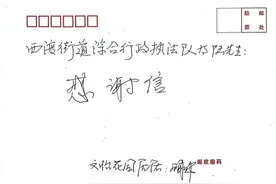 贴 邮
票 处
西滨街道综合行政执法队的陆先生:
感谢信
文怡花园居住:
邮政编码